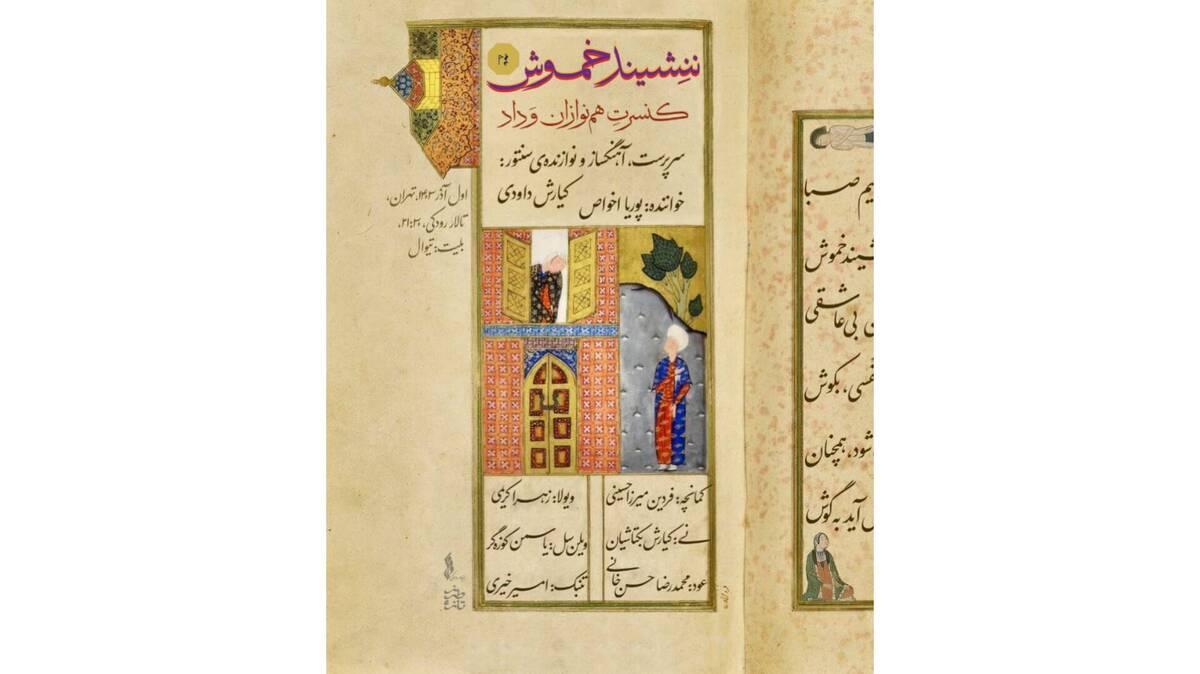 ننشیند خموش
کنسرتِ هم‌نوازان وَداد
سرپرست، آهنگساز و نوازنده‌ی سنتور:
کیارش داودی
خواننده: پوریا اخواص
اول آذر ۱۴۰۳، تهران،
تالار رودکی، ۲۱:۳۰
بلیت: تیوال
کمانچه: فردین میرزاحسینی
نی: کیارش بکتاشیان
عود: محمدرضا حسن‌خانی
ویولا: زهرا اکبری
ویلن‌سل: یاسمن کوزه‌گر
تنبک: امیر خیری
یم صبا
شیند خموش
بی‌عاشقی
نفسی، بکوش
شود، همچنان
آید به گوش